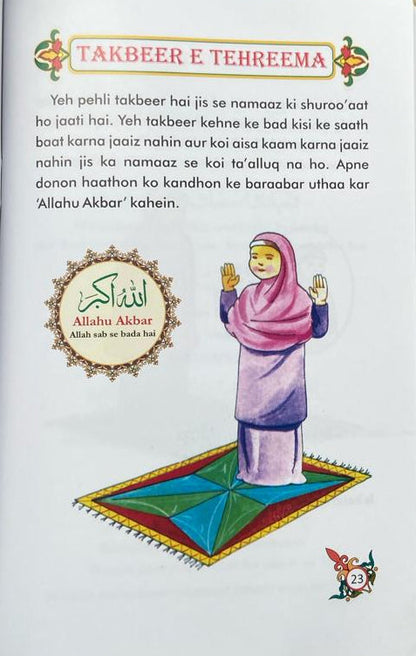 TAKBEER E TEHREEMA
Yeh pehli takbeer hai jis se namaaz ki shuroo'aat
ho jaati hai. Yeh takbeer kehne ke bad kisi ke saath
baat karna jaaiz nahin aur koi aisa kaam karna jaaiz
nahin jis ka namaaz se koi ta'alluq na ho. Apne
donon haathon ko kandhon ke baraabar uthaa kar
'Allahu Akbar' kahein.
الله اكبر
Allahu Akbar
Allah sab se bada hai
23